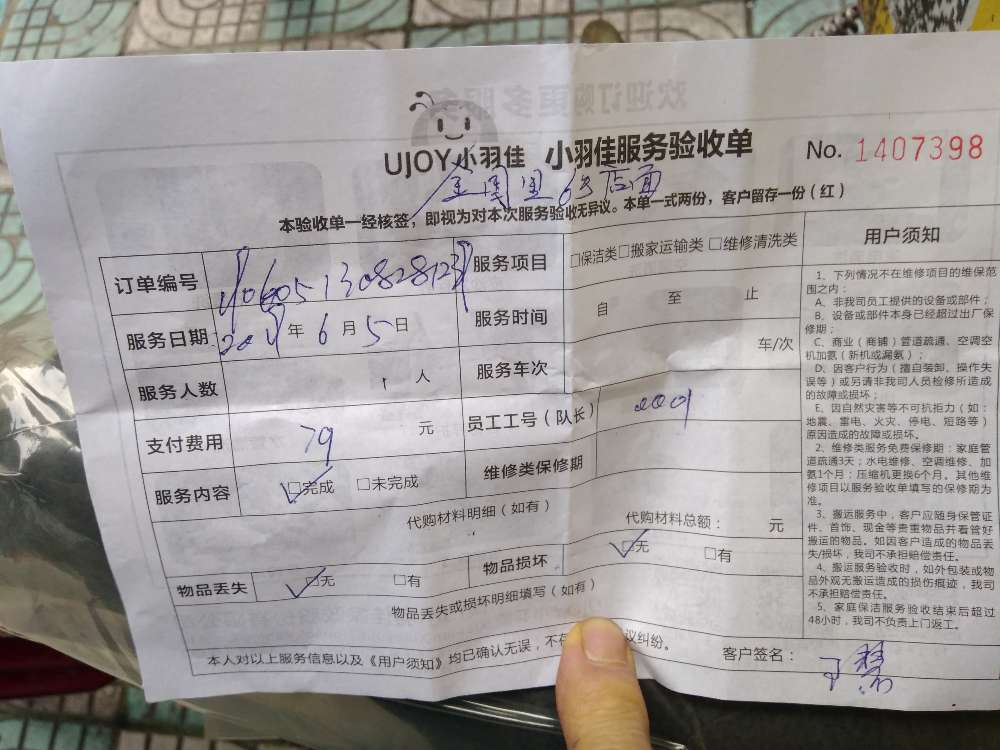 UJOY小羽佳 小羽佳服务验收单
No. 1407398
本验收单一经核签，即视为对本次服务验收无异议。本单一式两份，客户留存一份(红)
订单编号
服务项目 □保洁类□搬家运输类 □维修清洗类
服务日期: 年 6 月 5 日
服务时间 自 至 止
服务人数 1 人
服务车次 车/次
支付费用 79 元
员工工号（队长）
服务内容 □完成 □未完成
维修类保修期
代购材料明细（如有）
代购材料总额： 元
物品丢失 □无 □有
物品损坏 □无 □有
物品丢失或损坏明细填写（如有）
本人对以上服务信息以及《用户须知》均已确认无误，不存 议纠纷。
客户签名：
用户须知
1、下列情况不在维修项目的维保范
围之内：
A、非我司员工提供的设备或部件；
B、设备或部件本身已经超过出厂保
修期；
C、商业（商铺）管道疏通、空调空
机加氨（新机或漏氨）；
D、因客户行为（擅自装卸、操作失
误等）或另请非我司人员检修所造成
的故障或损坏；
E、因自然灾害等不可抗拒力（如：
地震、雷电、火灾、停电、短路等）
原因造成的故障或损坏。
2、维修类服务免费保修期：家庭管
道疏通3天；水电维修、空调维修、加
氨1个月；压缩机更换6个月。其他维
修项目以服务验收单填写的保修期为
准。
3、搬运服务中，客户应随身保管证
件、首饰、现金等贵重物品并看管好
搬运的物品。如因客户造成的物品丢
失/损坏，我司不承担赔偿责任。
4、搬运服务验收时，如外包装或物
品外观无搬运造成的损伤痕迹，我司
不承担赔偿责任。
5、家庭保洁服务验收结束后超过
48小时，我司不负责上门返工。